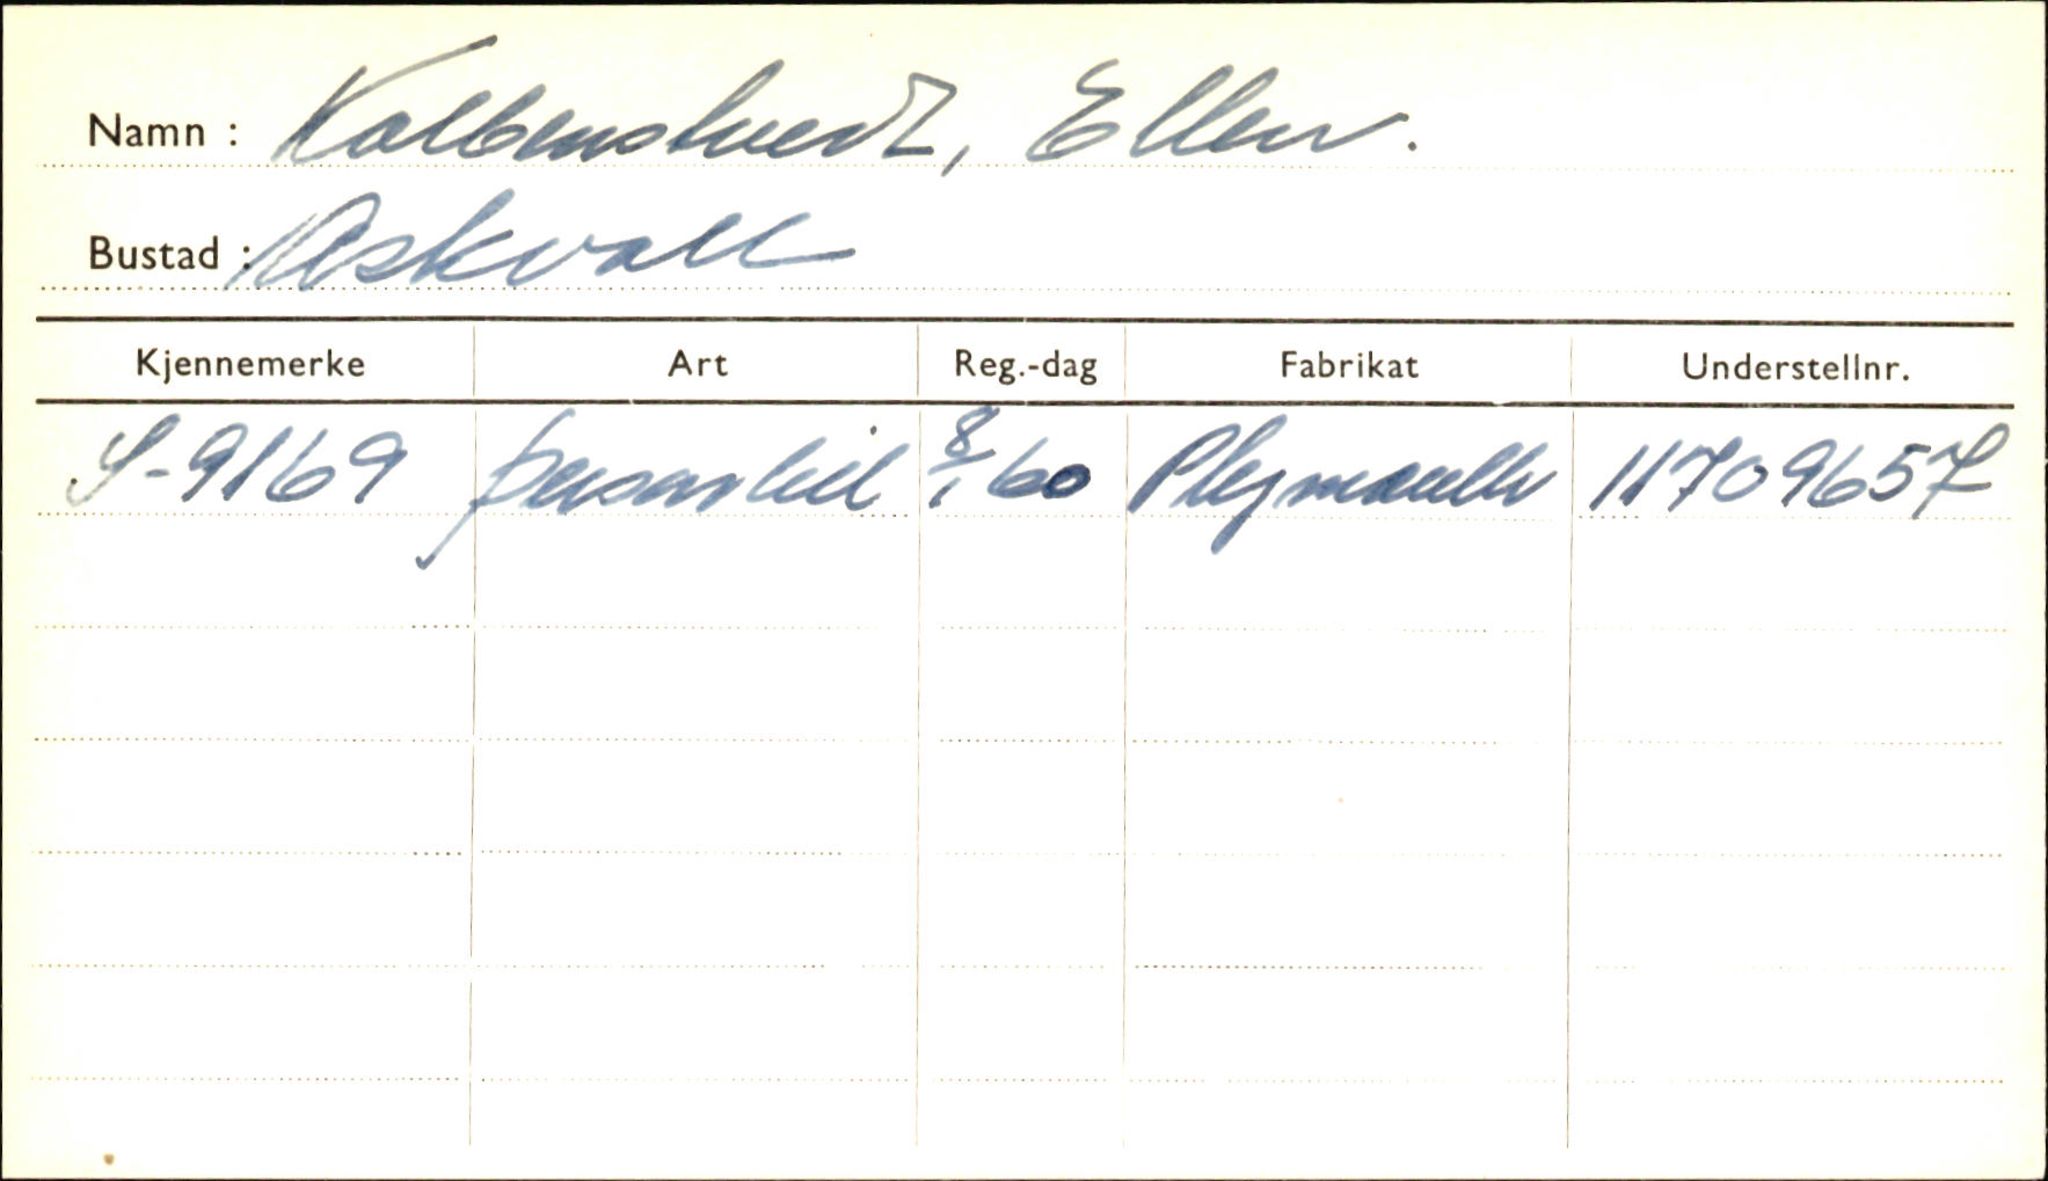 Namn : Kolbenstvedt, Ellen.
Bustad : Askvoll
Kjennemerke Art Reg.-dag Fabrikat Understellnr.
S-9169 personbil 8/1 60 Plymouth 11709657